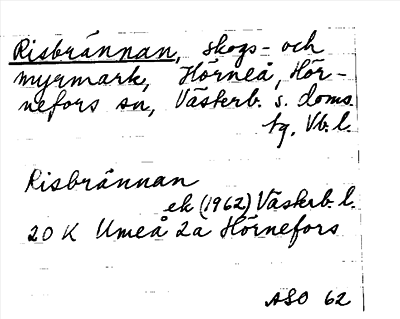 Risbrännan, skogs- och
myrmark, Hörneå, Hör-
nefors sn, Västerb. s. doms
tg. Vb. l.
Risbrännan
ek (1962) Västerb. l.
20 K Umeå 2a Hörnefors
ASO 62